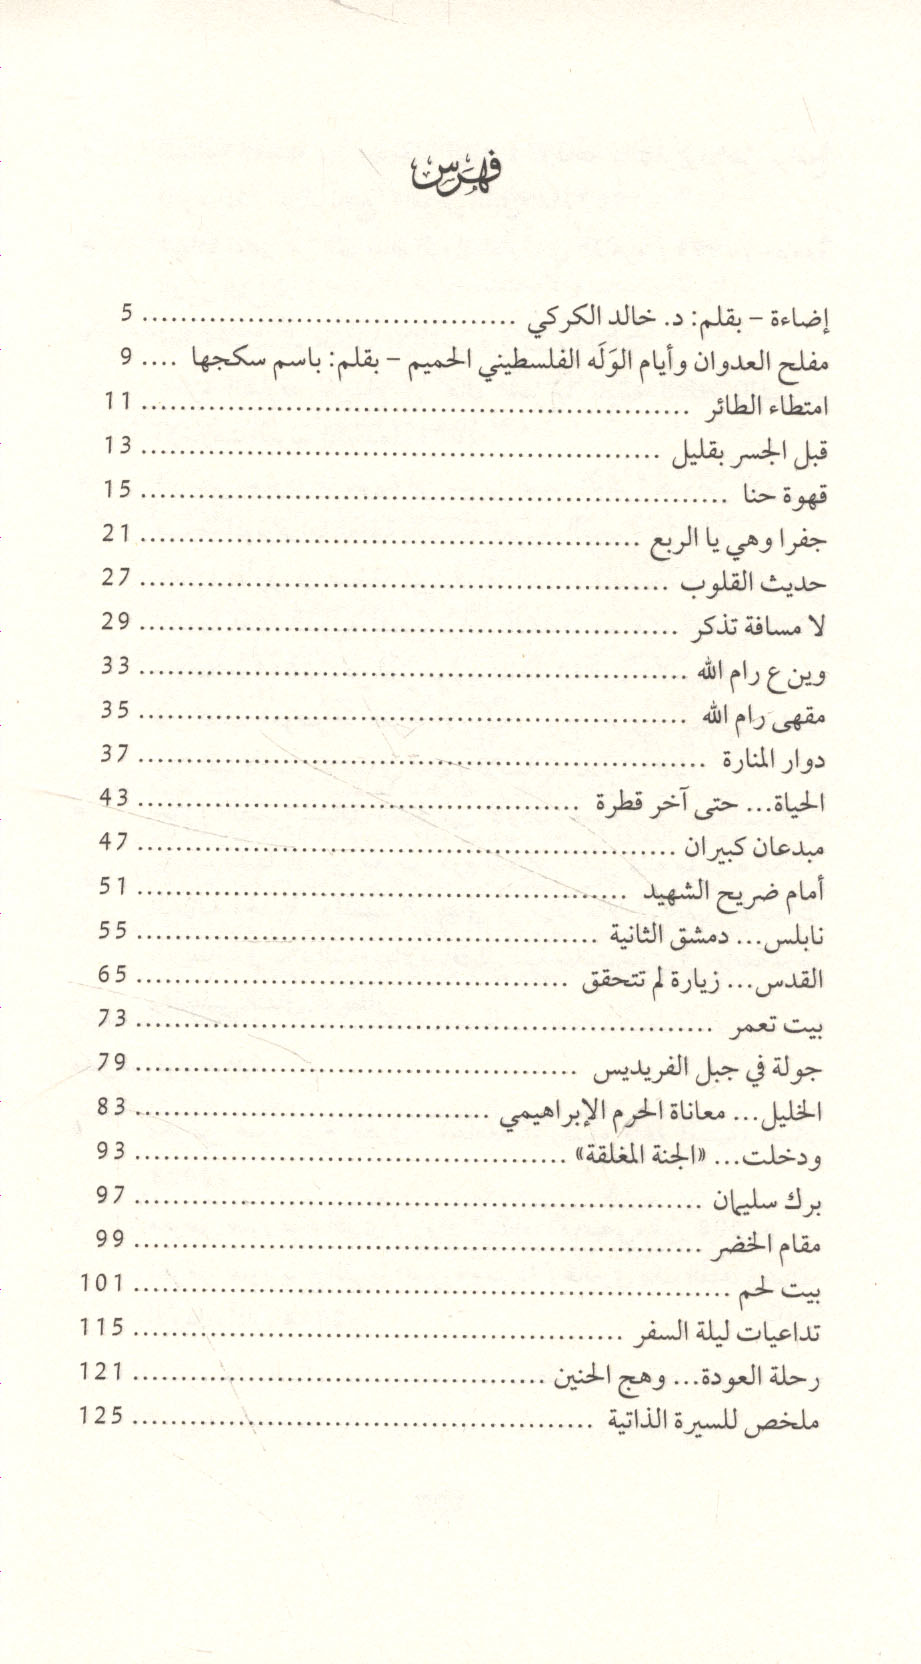 فهرس
إضاءة – بقلم: د. خالد الكركي ...................................... 5
مفلح العدوان وأيام الوَلَه الفلسطيني الحميم – بقلم: باسم سكجها .... 9
امتطاء الطائر ........................................................ 11
قبل الجسر بقليل ..................................................... 13
قهوة حنا ............................................................ 15
جفرا وهي يا الربع ................................................... 21
حديث القلوب ...................................................... 27
لا مسافة تذكر ....................................................... 29
وين ع رام الله ........................................................ 33
مقهى رام الله ....................................................... 35
دوار المنارة .......................................................... 37
الحياة... حتى آخر قطرة ............................................. 43
مبدعان كبيران ....................................................... 47
أمام ضريح الشهيد .................................................. 51
نابلس... دمشق الثانية ............................................... 55
القدس... زيارة لم تتحقق ............................................ 65
بيت تعمر ........................................................... 73
جولة في جبل الفريديس ............................................. 79
الخليل... معاناة الحرم الإبراهيمي .................................... 83
ودخلت... «الجنة المغلقة» ............................................ 93
برك سليمان ......................................................... 97
مقام الخضر ......................................................... 99
بيت لحم ............................................................ 101
تداعيات ليلة السفر .................................................. 115
رحلة العودة... وهج الحنين .......................................... 121
ملخص للسيرة الذاتية ............................................... 125